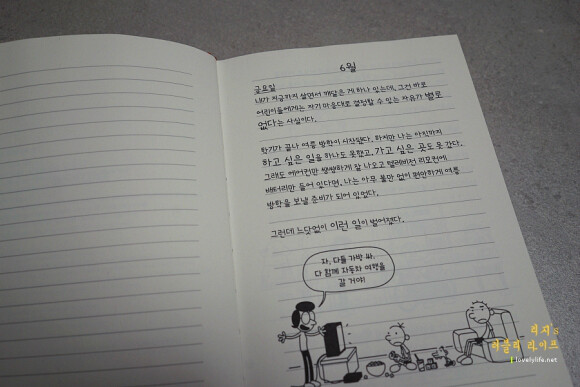 6월
금요일
내가 지금까지 살면서 깨달은 게 하나 있는데, 그건 바로
어린이들에게는 자기 마음대로 결정할 수 있는 자유가 별로
없다는 사실이다.
학기가 끝나 여름 방학이 시작됐다. 하지만 나는 아직까지
하고 싶은 일을 하나도 못했고, 가고 싶은 곳도 못 갔다.
그래도 에어컨만 쌩쌩하게 잘 나오고 텔레비전 리모컨에
배터리만 들어 있다면, 나는 아무 불만 없이 편안하게 여름
방학을 보낼 준비가 되어 있었다.
그런데 느닷없이 이런 일이 벌어졌다.
자, 다들 가방 싸.
다 함께 자동차 여행을
갈 거야!
리지's
러블리 라이프
lovelylife.net